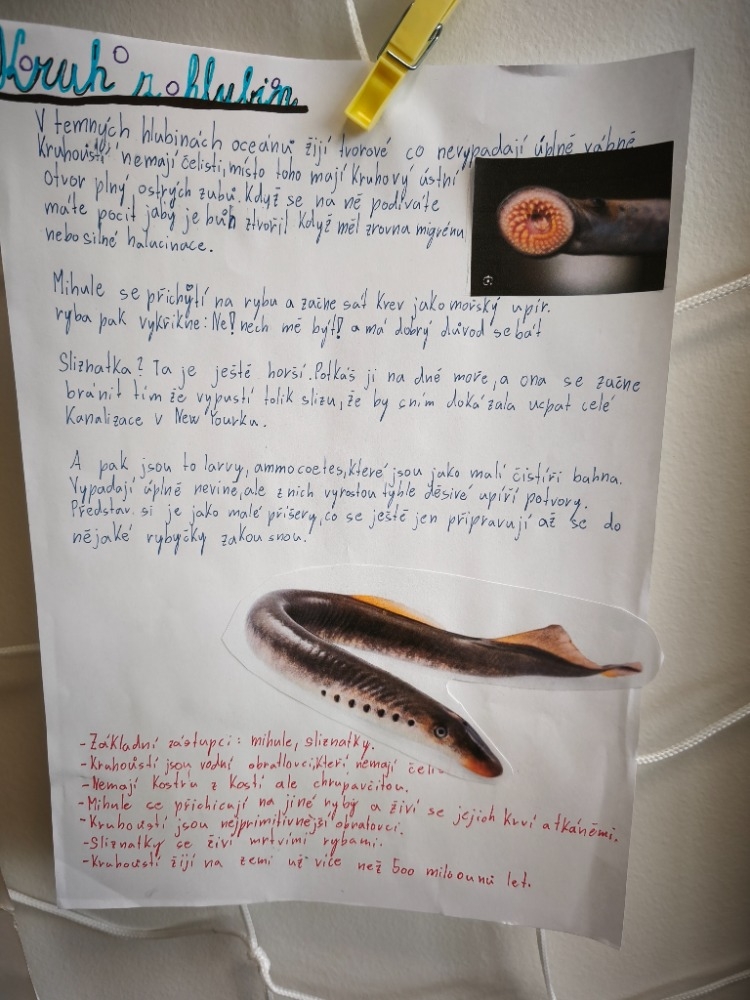 Kruh z hlubin
V temných hlubinách oceánu žijí tvorové co nevypadají úplně vábně
Kruhoústí nemají čelisti, místo toho mají Kruhový ústní
otvor plný ostrých zubů. Když se na ně podíváte
máte pocit jaby je bůh stvořil Když měl zrovna migrénu
nebo silné halucinace.
Mihule se přichytí na rybu a začne sát krev jako mořský upír.
ryba pak vykřikne: Ne! nech mě být! a má dobrý důvod se bát
Sliznatka? Ta je ještě horší. Potkáš ji na dně moře, a ona se začne
bránit tím že vypustí tolik slizu, že by s ním dokázala ucpat celé
Kanalizace v New Yourku.
A pak jsou to larvy, ammocoetes, které jsou jako malí čistíři bahna.
Vypadají úplně nevině, ale z nich vyrostou tyhle děsivé upíří potvory.
Představ si je jako malé příšery, co se ještě jen připravují až se do
nějaké rybyčky zakousnou.
-Základní zástupci: mihule, sliznatky.
-Kruhoústí jsou vodní obratlovci, kteří nemají čeli
-Nemají Kostru z Kostí ale chrupavčitou.
-Mihule se přichicají na jiné ryby a živí se jejich krví a tkáněmi.
-Kruhoústí jsou nejprimitivnější obratovci.
-Sliznatky se živí mrtvími rybami.
-Kruhoustí žijí na zemi už více než 500 miloounů let.